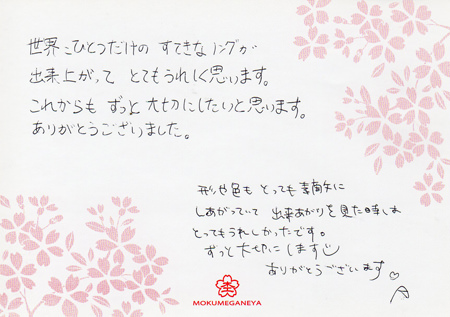 世界にひとつだけの すてきなリングが
出来上がって とてもうれしく思います。
これからも ずっと 大切にしたいと思います。
ありがとうございました。
形や色も とっても素敵に
しあがっていて 出来あがりを見た時は
とってもうれしかったです。
ずっと大切にします
ありがとうございます♡
MOKUMEGANEYA